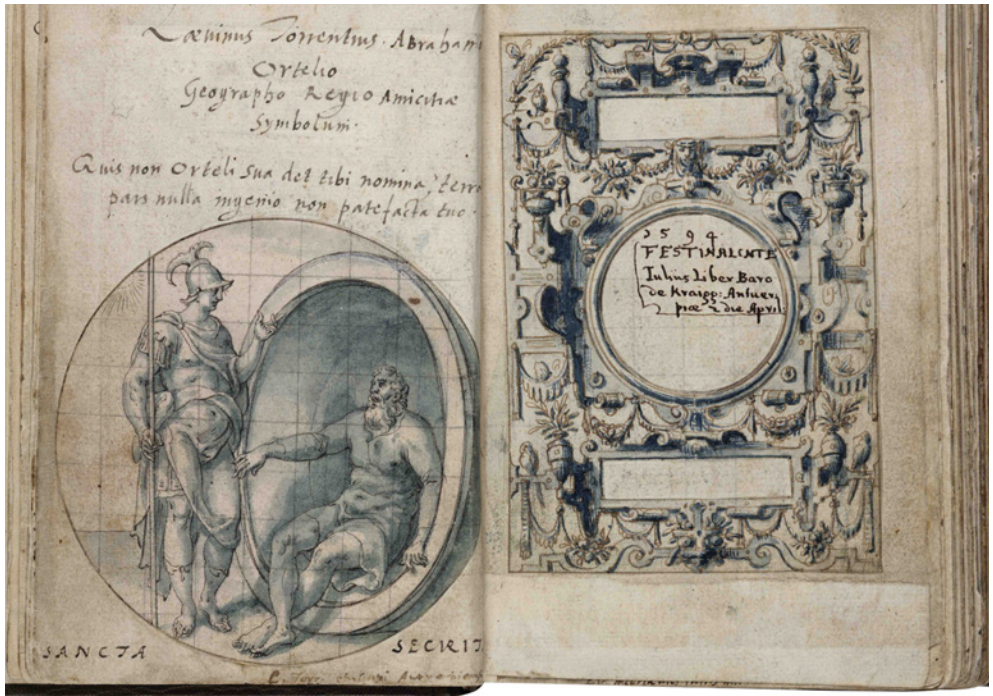 Lævinus Torrentius. Abraham
Ortelio
Geographo Regio Amicitiæ
Symbolum.
Quis non Orteli sua det tibi nomina, terræ
pars nulla ingenio non patefacta tuo.
SANCTA
SECRIT
1594
FESTINALENTE
Iulius Liber Baro
de Kraigg: Antuer
piæ 2 die April: